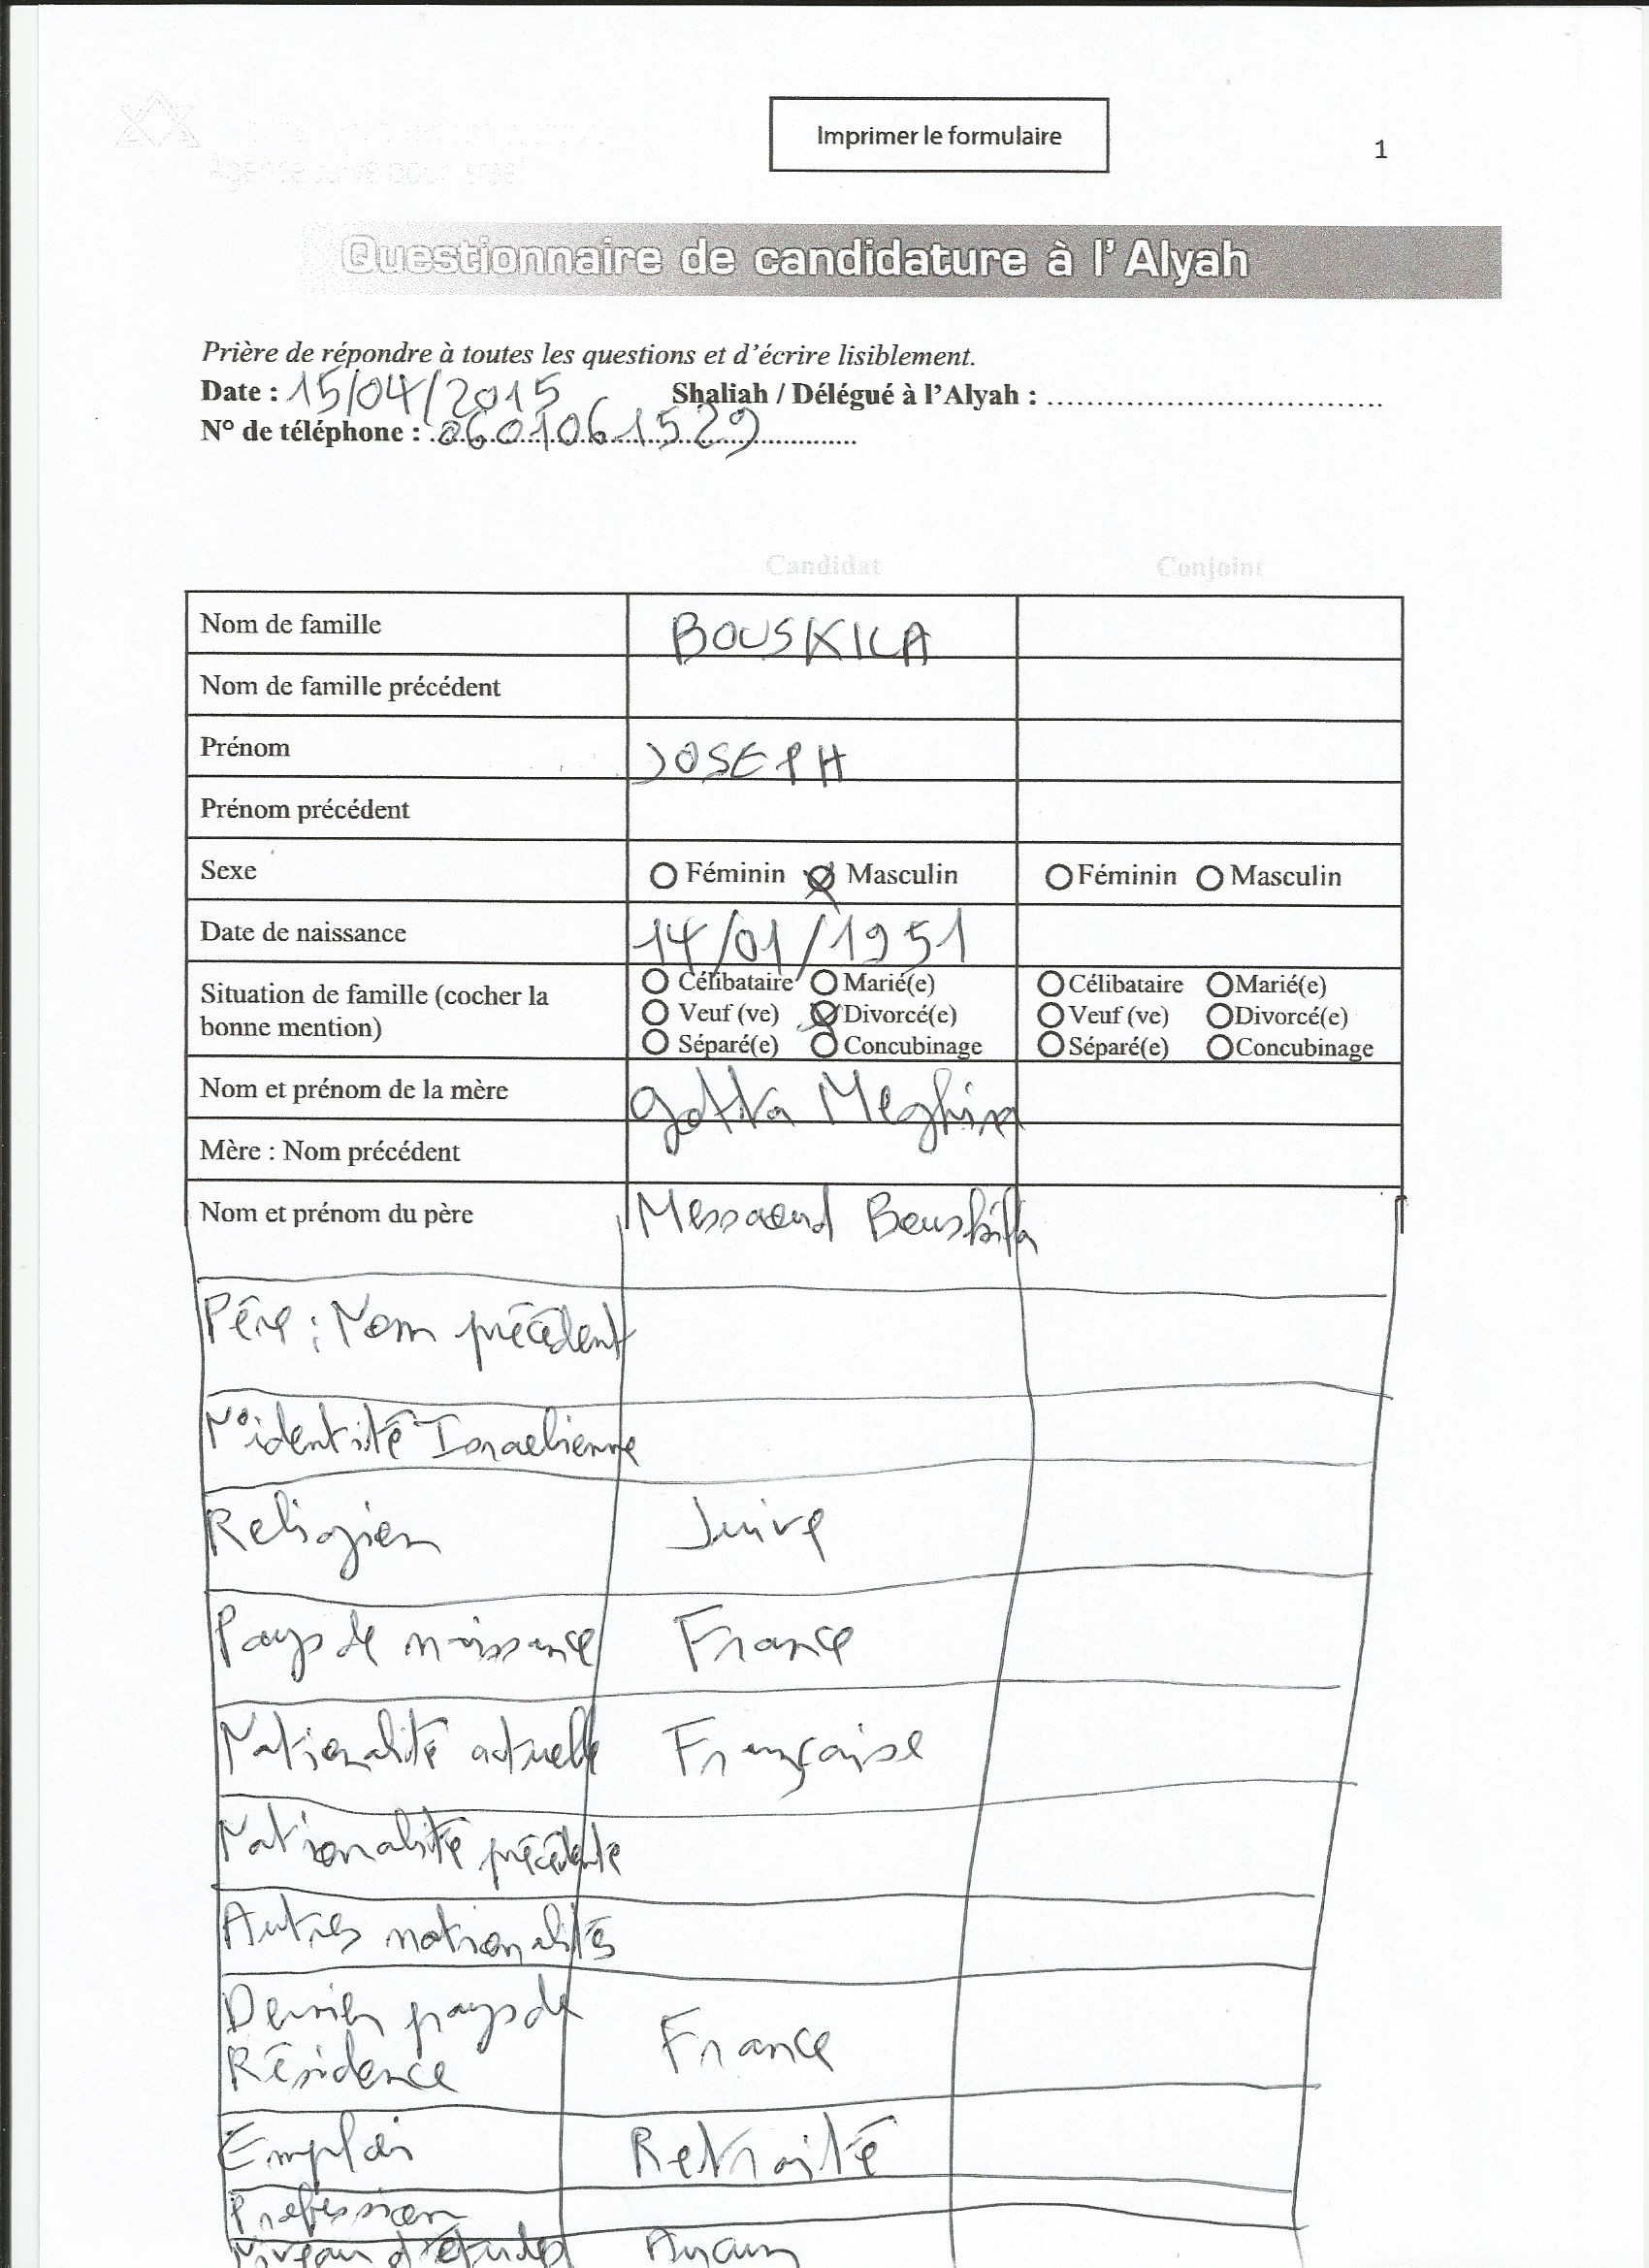 Imprimer le formulaire
1
Agence Juive pour Israël
Questionnaire de candidature à l'Alyah
Prière de répondre à toutes les questions et d'écrire lisiblement.
Date : 15/04/2015 Shaliah / Délégué à l'Alyah : ................................
N° de téléphone : 0601061529
Candidat Conjoint
Nom de famille BOUSKILA
Nom de famille précédent
Prénom JOSEPH
Prénom précédent
Sexe Féminin Masculin Féminin Masculin
Date de naissance 14/01/1951
Situation de famille (cocher la bonne mention) Célibataire Marié(e) Célibataire Marié(e)
Veuf (ve) Divorcé(e) Veuf (ve) Divorcé(e)
Séparé(e) Concubinage Séparé(e) Concubinage
Nom et prénom de la mère
Mère : Nom précédent
Nom et prénom du père Messaoud Bouskila
Père : Nom précédent
N° identité Israelienne
Religion Juive
Pays de naissance France
Nationalité actuelle Française
Nationalité précédente
Autres nationalités
Dernier pays de
Résidence France
Emploi Retraité
Profession
Niveau d'études Aucun